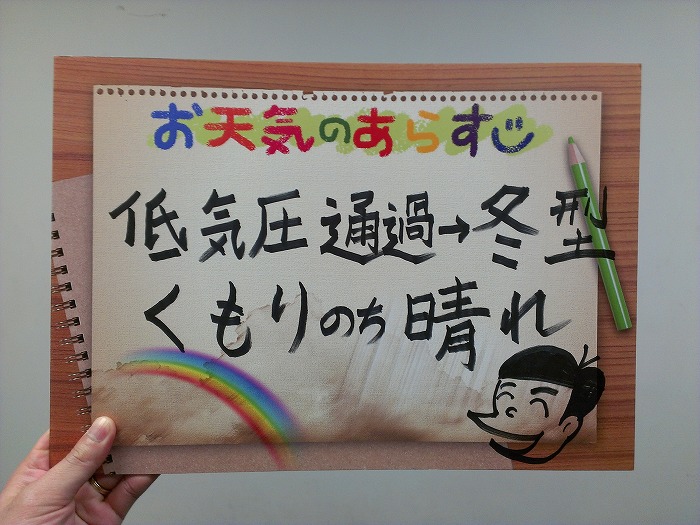 お天気のあらすじ
低気圧通過→冬型
くもりのち晴れ